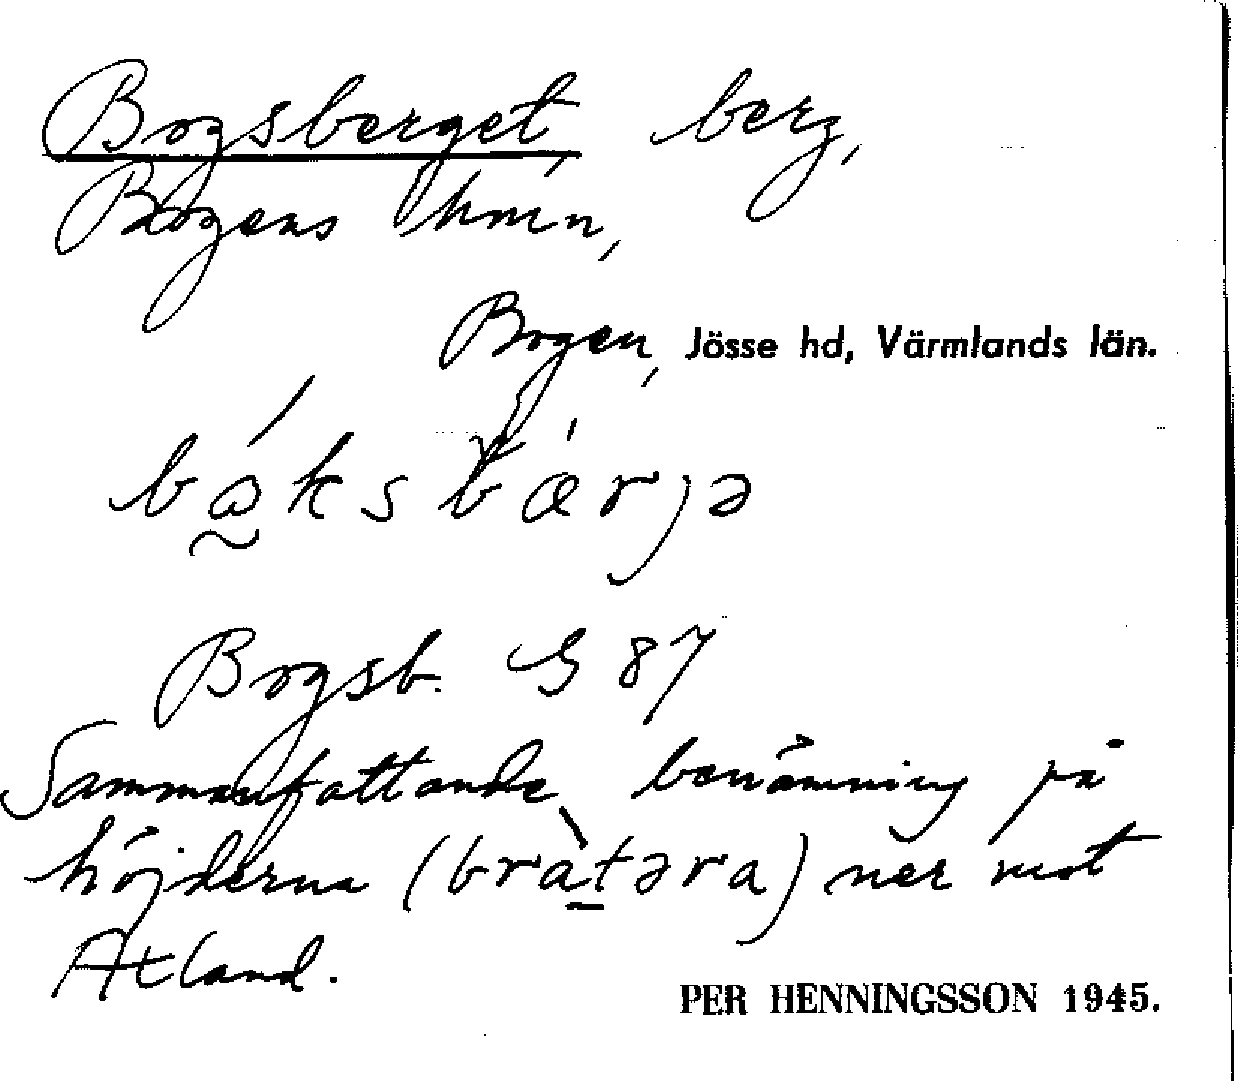 Bogsberget, berg,
Bogens hmn,
Bogen, Jösse hd, Värmlands län.
bǻ̰ksbǽrjə
Bogsb. G 87
Sammanfattande benämning på
höjderna (bràt̠əra) ner mot
Ätland.
PER HENNINGSSON 1945.